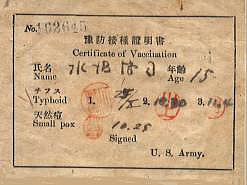 No.
豫防接種證明書
Certificate of Vaccination
氏名 年齡 15
Name Age
チフス
Typhoid 1. 2. 10.30 3. 11.4
天然痘
Small pox 10.25
Signed
U. S. Army.